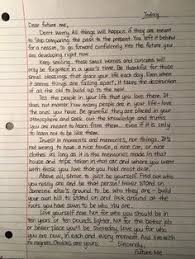 Today
Dear future me,
Don't worry. All things will happen if they are meant
to. Stop comparing the past to the present. You left it behind
for a reason, so go forward confidently into the future you
are developing right now.
Keep smiling, these small worries and concerns will
only be forgotten in a year's time. Be thankful for those
small blessings that grace your life each day. Even when
it seems things are falling apart, it takes the destruction
of the old to build up to the new.
Tell the people in your life that you love them. It
does not matter how many people are in your life- love
the ones you have. Be grateful they are placed in your
and seek out the knowledge and truths
you are meant to learn from them - even if it is only
to learn not to be like them.
Invest in moments and memories, not things. It's
not wrong to have a nice house, a nice car, or nice
clothes as long as it is the memories made in that
house and trips taken in that car and where you went
with those you love that you hold most dear.
Above all, listen to just be yourself. Find out who
you really are and be that person! House stand on
someone else's ground to be who they are- build
your own hill to stand on and look around at the
you have down to be who you are.
Love yourself now. Not for who you should be in
ten years or ten pounds lighter. Not for the better job
or better place you'll be someday. Love you for who
you are now, in each and every moment. And remember- I'm
Sincerely,
Future Me